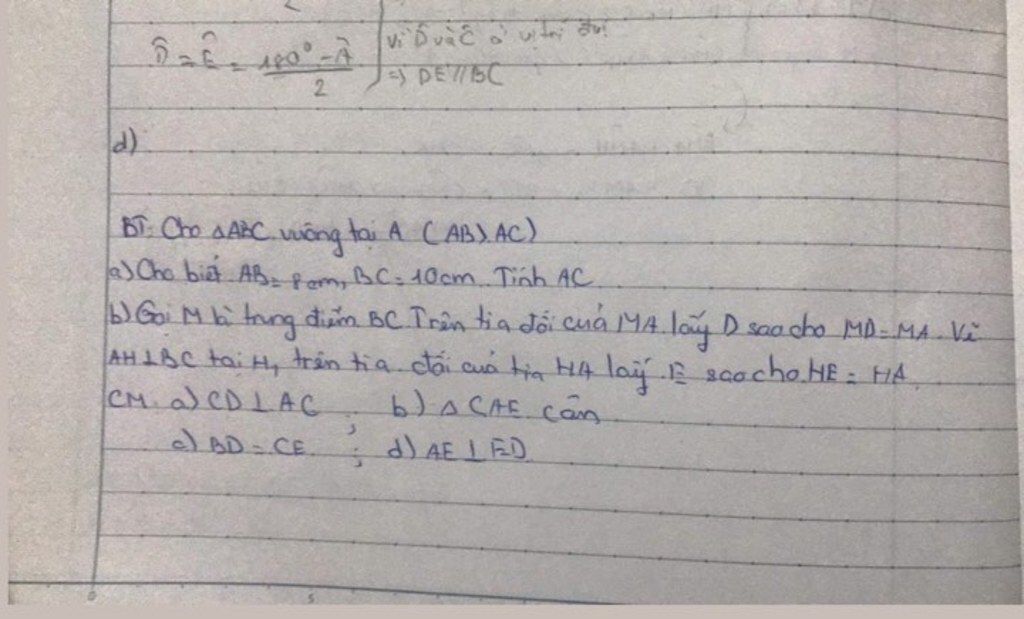 D̂ = Ê = 180° - Â / 2 vì D̂ và Ĉ ở vị trí
=> DE // BC
d)
BT: Cho ΔABC vuông tại A (AB > AC)
a) Cho biết AB = 8cm, BC = 10cm. Tính AC
b) Gọi M là trung điểm BC. Trên tia đối cuả MA lấy D sao cho MD = MA. Vẽ
AH ⊥ BC tại H, trên tia đối cuả tia HA lấy E sao cho HE = HA.
CM a) CD ⊥ AC ; b) Δ CAE cân
c) BD = CE ; d) AE ⊥ ED
0 5